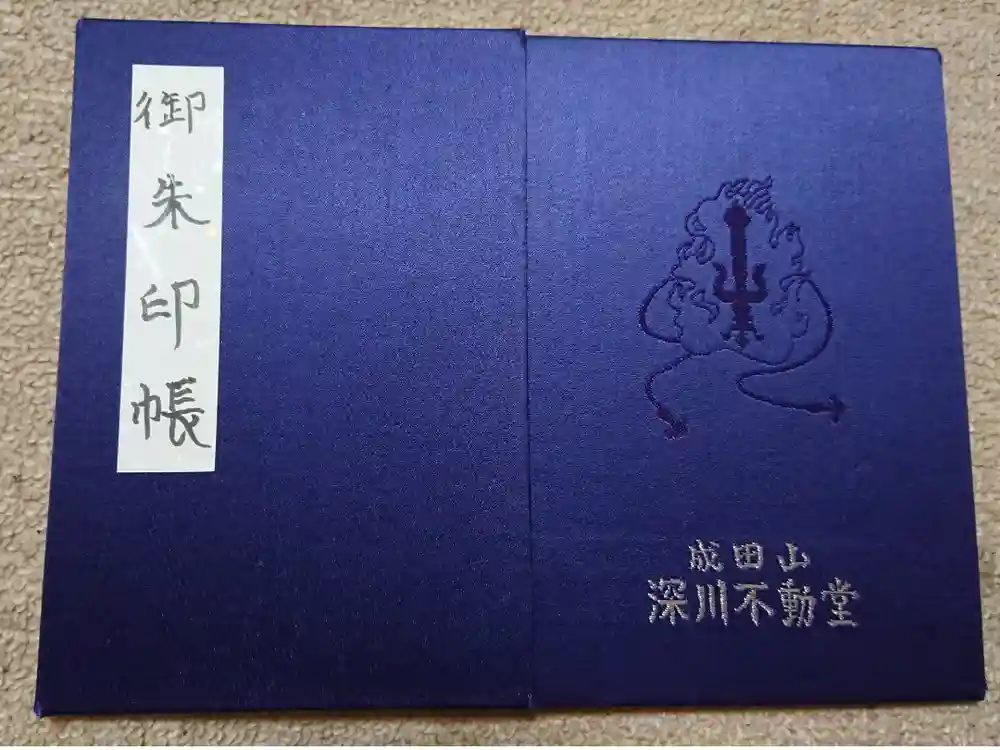 御朱印帳
成田山
深川不動堂